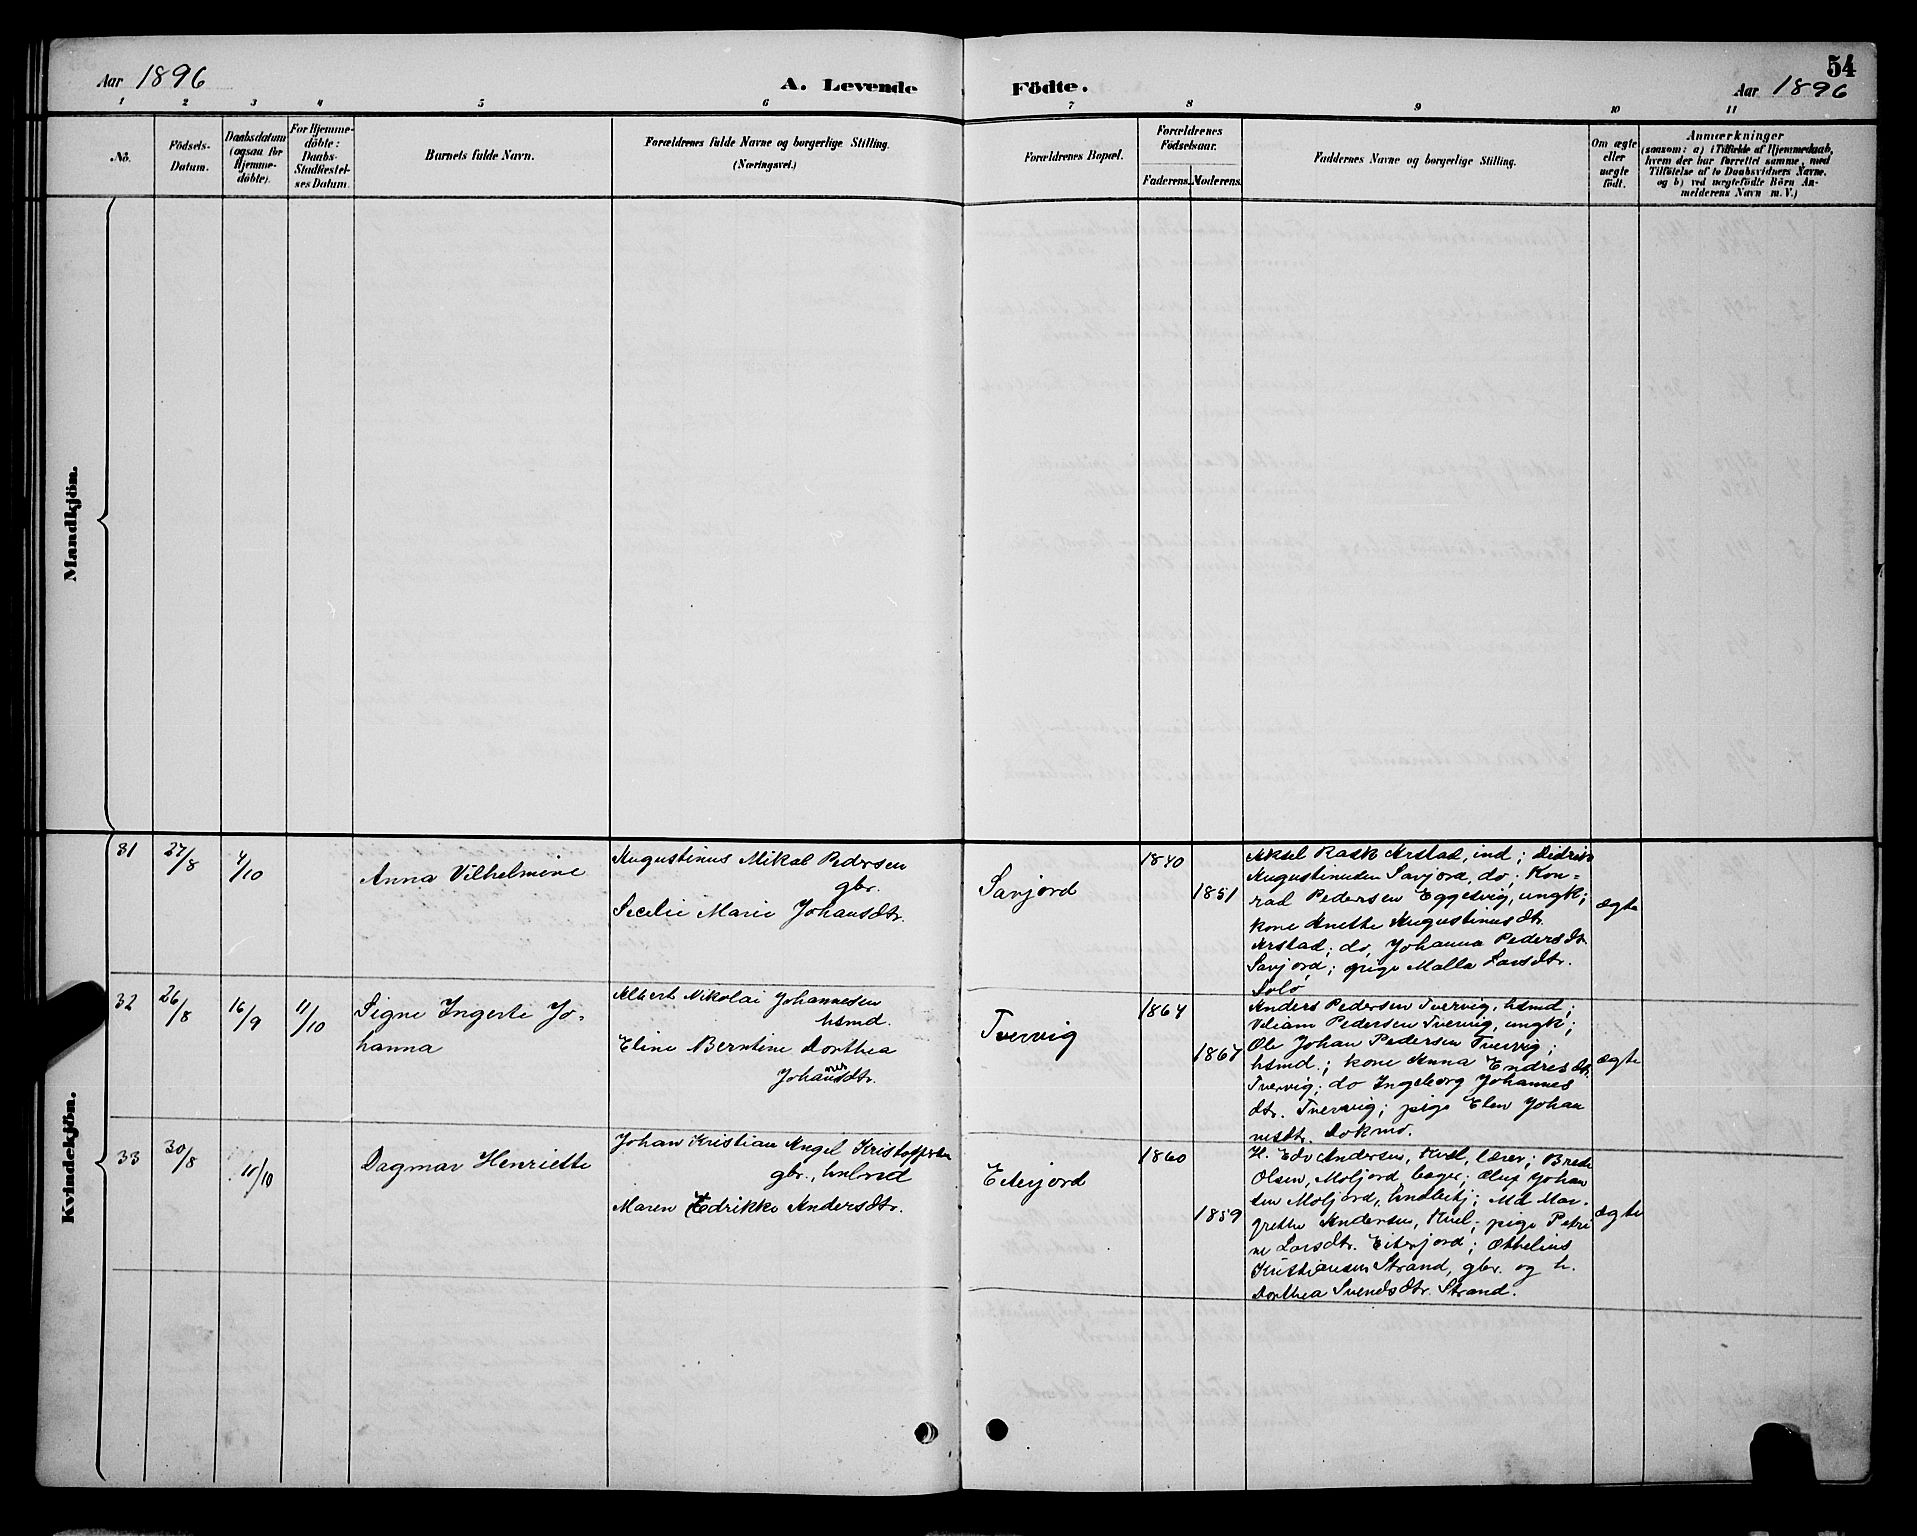 Aar 1896
A. Levende Födte.
54
Aar 1896
1 2 3 4 5 6 7 8 9 10 11
No.
Födsels-
Datum.
Daabsdatum
(ogsaa for
Hjemme-
döbte).
For Hjemme-
döbte:
Daabs-
Stadfæstel-
ses Datum.
Barnets fulde Navn.
Forældrenes fulde Navne og borgerlige Stilling.
(Næringsvei.)
Forældrenes Bopæl.
Forældrenes
Födselsaar.
Faderens. Moderens.
Faddernes Navne og borgerlige Stilling.
Om ægte
eller
uægte
födt.
Anmærkninger
(saasom: a) i Tilfælde af Hjemmedaab,
hvem der har forrettet samme, med
Tilföielse af to Daabsvidners Navne.
og b) ved uægtefödte Börn An-
melderens Navn m. V.)
Mandkjön.
Kvindekjön.
31
27/8
4/10
Anna Vilhelmine
Augustinus Mikal Pedersen
gbr.
Secelie Marie Johansdtr.
Savjord
1840
1851
Aksel Rask Arstad, ind; Didrik
Augustinusen Savjord, do; Kon-
rad Pedersen Eggesvig, ungk;
kone Anette Augustinusdtr.
Arstad; do, Johanna Pedersdtr.
Savjord; pige Malla Larsdtr.
Solö
ægte
32
26/8
16/9
11/10
Signe Ingerte Jo-
hanna
Albert Nikolai Johannesen
hsmd.
Eline Berntine Dorthea
Johansdtr.
Tvervig
1864
1867
Anders Pedersen Tvervig, hsmd;
Viliam Pedersen Tvervig, ungk;
Ole Johan Pedersen Tvervig;
hsmd.; kone Anna Endresdtr.
Tvervig; do Ingeborg Johannes
dtr. Tvervig; pige Elen Johan
nesdtr. Dokmo.
ægte
33
30/8
11/10
Dagmar Henriette
Johan Kristian Angel Kristoffersen
gbr.,
Maren Edrikke Andersdtr.
Eiterjord
1860
1859
H. Edv Andersen, lærer; Brede
Olsen, Moljord, bager; Oluf Johan
sen Moljord, Md Mar-
grethe Andersen, pige Petri
ne Larsdtr. Eiterjord; Othelius
Kristiansen Strand, gbr. og h.
Dorthea Svendsdtr. Strand.
ægte